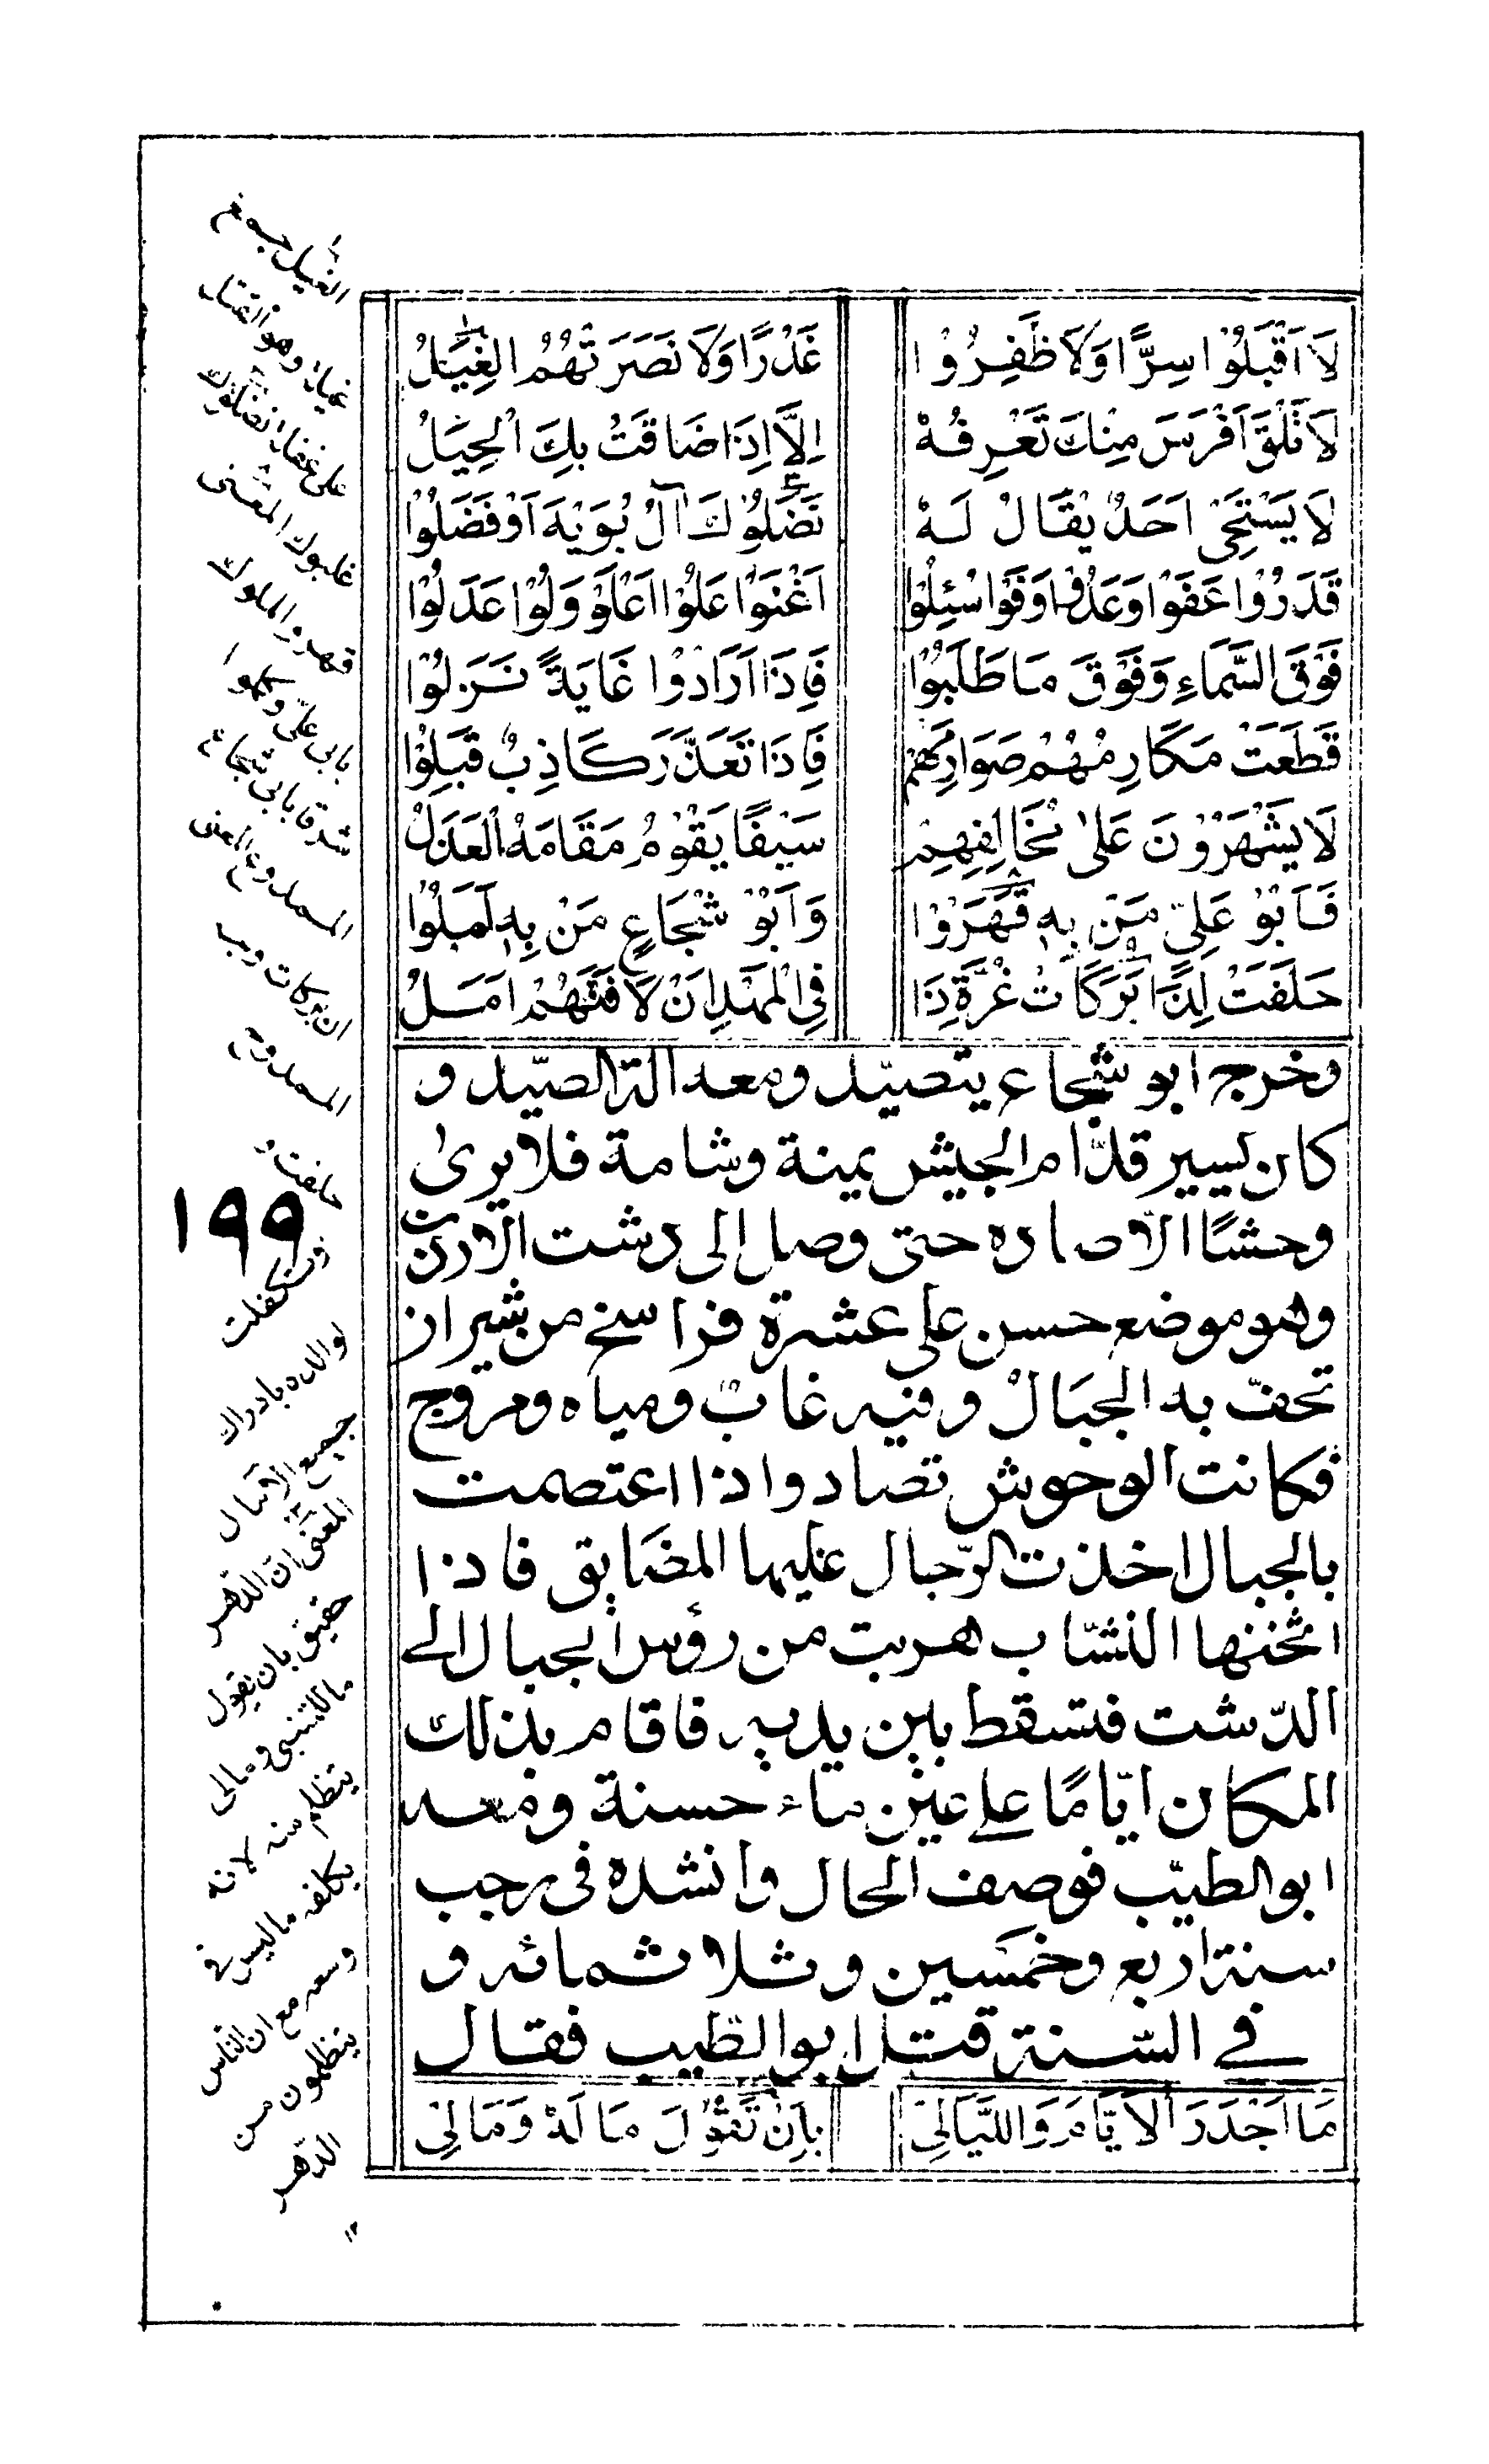 لَا اَقْبَلُوْا سِرًّا وَلَا ظَفِرُوْا غَدْرًا وَلَا نَصَرَتْهُمُ الْغِيَلُ
لَا تَلْقَ اَفْرَسَ مِنْكَ تَعْرِفُهْ اِلَّا اِذَا ضَاقَتْ بِكَ الْحِيَلُ
لَا يَسْتَحِيْ اَحَدٌ يُقَالُ لَهْ نَضَلُوْكَ آلُ بُوَيْهَ اَوْ فَضَلُوْا
قَدَرُوْا عَفَوْا وَعَدُوْا وَفَوْا سُئِلُوْا اَغْنَوْا عَلَوْا اَعْلَوْ وَلُوْا عَدَلُوْا
فَوْقَ السَّمَاءِ وَفَوْقَ مَا طَلَبُوْا فَاِذَا اَرَادُوْا غَايَةً نَزَلُوْا
قَطَعَتْ مَكَارِمُهُمْ صَوَارِمَهُمْ فَاِذَا تَعَذَّرَ كَاذِبٌ قَبِلُوْا
لَا يَشْهَرُوْنَ عَلٰى مُخَالِفِهِمْ سَيْفًا يَقُوْمُ مَقَامَهُ الْعَذَلُ
فَاَبُوْ عَلِيٍّ مَنْ بِهٖ قَهَرُوْا وَاَبُوْ شُجَاعٍ مَنْ بِهٖ كَمَلُوْا
حَلَفَتْ لِذَا بَرَكَاتُ غُرَّةِ ذَا فِي الْمَهْدِ اِنْ لَا فَتَهُمْ اَمَلُ
وخرج ابو شجاع يتصيّد ومعه الة الصّيد و
كان يسير قدّام الجيش يمنة وشامة فلا يرىٰ
وحشًا الّا صاده حتى وصل الى دشت الارزن
وهو موضع حسن على عشرة فراسخ من شيراز
تحفّ به الجبَالُ وفيه غابٌ ومياه ومروج
فكانت الوحوش تصاد واذا اعتصمت
بالجبال اخذت الرّجال عليها المضايق فاذا
اثخنها النشّاب هربت من رؤس الجبال الى
الدّشت فتسقط بين يديه فاقام بذلك
المكان ايّامًا على عين ماء حسنة ومعه
ابو الطيّب فوصف الحال وانشده فى رجب
سنة اربع وخمسين وثلاثمائه و
في السّنة قتل ابو الطّيب فقال
مَا اَجْدَرَ الْاَيَّامَ وَاللَّيَالِيْ بِاَنْ تَقُوْلَ مَا لَهٗ وَمَا لِيْ
غلبوك المعنى
قهروا الملوك
بابى علىّ وكملوا
ان بركات وجه
١٩٩
لوالده بادراك
جميع الآمال
المعنى ان الدّهر
حقيق بان يقول
ما للمتنبى وما لى
يتظلم منه لانه
يكلفه ما ليس فى
وسعه مع ان النّاس
يتظلمون من
الدّهر
١٢